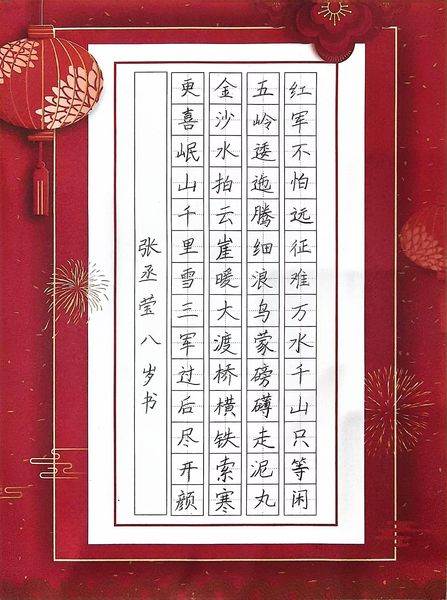 红军不怕远征难万水千山只等闲
五岭逶迤腾细浪乌蒙磅礴走泥丸
金沙水拍云崖暖大渡桥横铁索寒
更喜岷山千里雪三军过后尽开颜
张丞莹八岁书